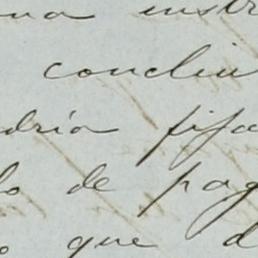 na instr
concluí
dría fija
lo de pag
que d